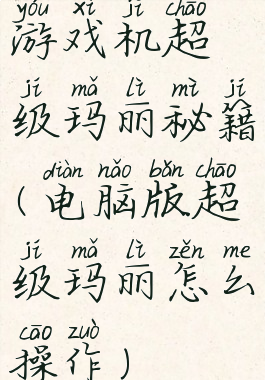 yóu xì jī chāo
游戏机超
jí mǎ lì mì jí
级玛丽秘籍
diàn nǎo bǎn chāo
(电脑版超
jí mǎ lì zěn me
级玛丽怎么
cāo zuò
操作)